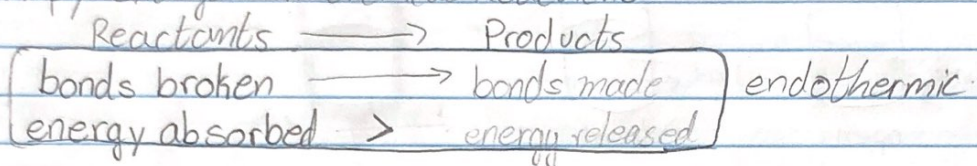 Reactants → Products
bonds broken → bonds made endothermic
energy absorbed > energy released